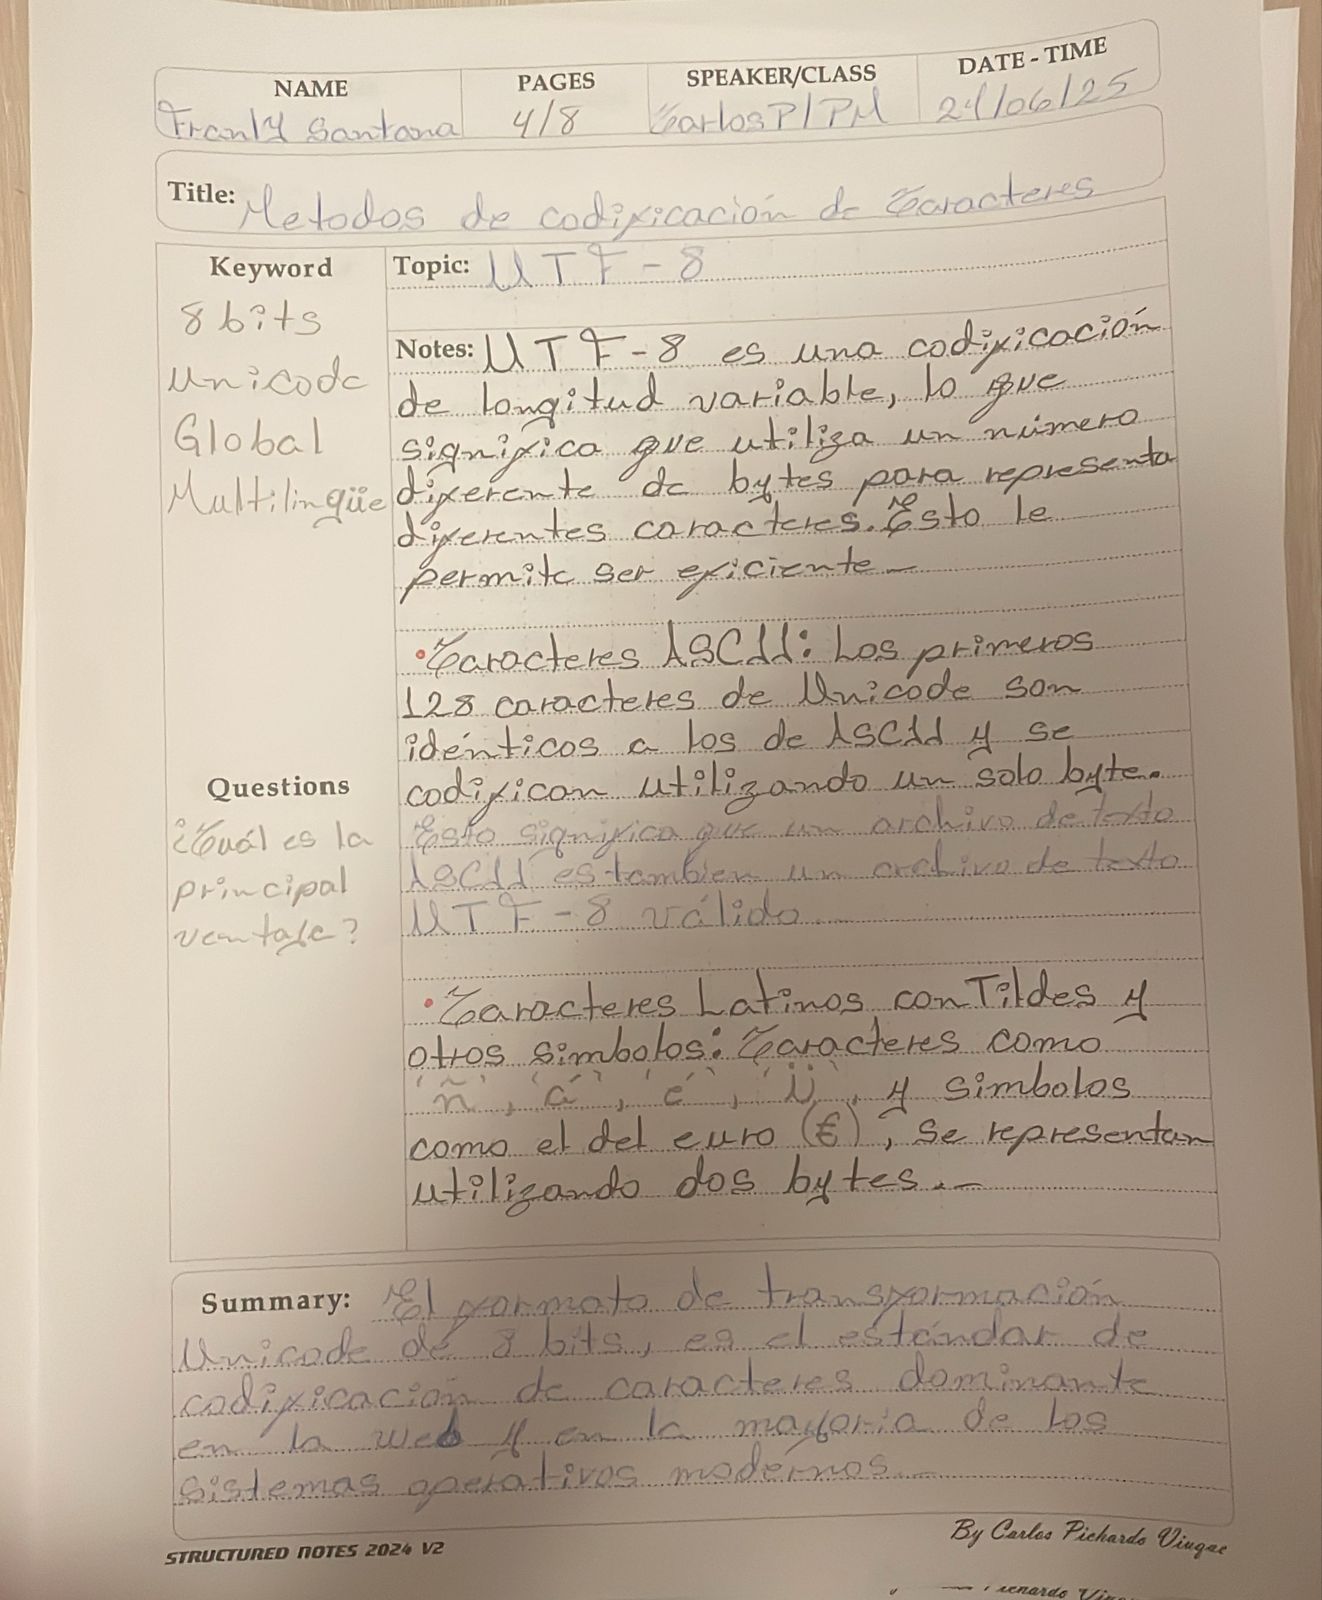 NAME PAGES SPEAKER/CLASS DATE - TIME
Franly Santana 4/8 Carlos P/PM 24/06/25
Title: Metodos de codificación de Caracteres
Keyword
8 bits
Unicode
Global
Multilingüe
Questions
¿Cuál es la
principal
ventaja?
Topic: UTF-8
Notes: UTF-8 es una codificación
de longitud variable, lo que
significa que utiliza un número
diferente de bytes para representa
diferentes caracteres. Esto le
permite ser eficiente
•Caracteres ASCII: Los primeros
128 caracteres de Unicode son
idénticos a los de ASCII y se
codifican utilizando un solo byte.
Esto significa que un archivo de texto
ASCII es tambien un archivo de texto
UTF-8 válido.
•Caracteres Latinos con Tildes y
otros simbolos: Caracteres como
'ñ', 'á', 'é', 'ü', y simbolos
como el del euro (€), se representan
utilizando dos bytes.-
Summary: El formato de transformación
Unicode de 8 bits, es el estándar de
codificación de caracteres dominante
en la web y en la mayoria de los
sistemas operativos modernos.
STRUCTURED NOTES 2024 V2
By Carlos Pichardo Viuque